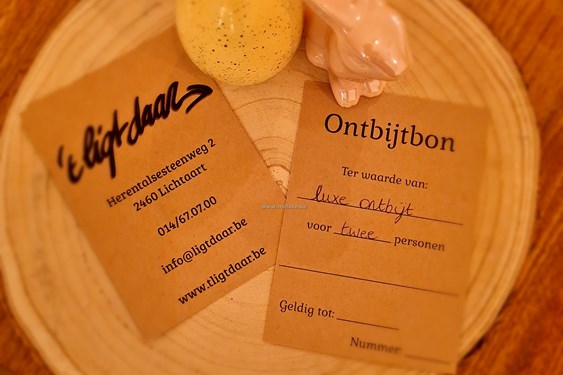 't ligt daar
Herentalsesteenweg 2
2460 Lichtaart
014/67.07.00
info@ligtdaar.be
www.tligtdaar.be
Ontbijtbon
Ter waarde van:
luxe ontbijt
voor twee personen
Geldig tot:
Nummer: